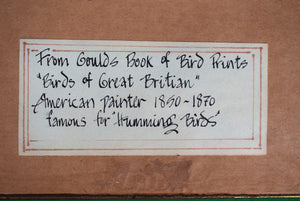 From Goulds Book of Bird Prints
"Birds of Great Britian"
American painter 1850-1870
famous for "Humming Birds"